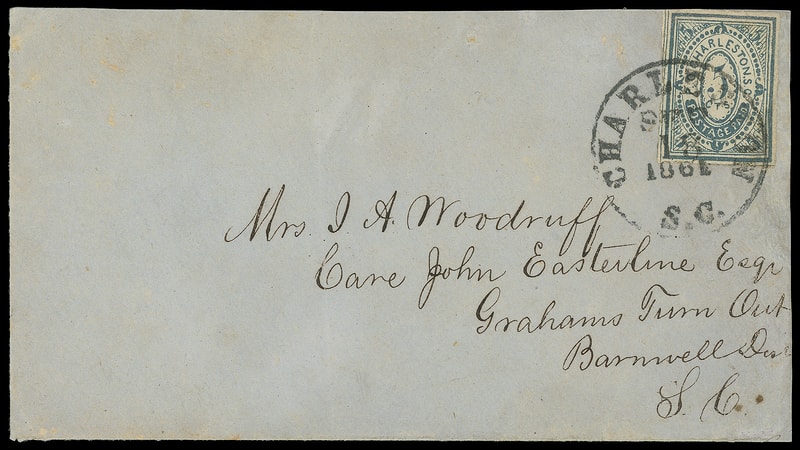 CHARLESTON, S.C.
5
CTS
POSTAGE PAID
CHARLESTON
1861
S.C.
Mrs. J A. Woodruff
Care John Easterline Esqr
Grahams Turn Out
Barnwell Dist
S. C.